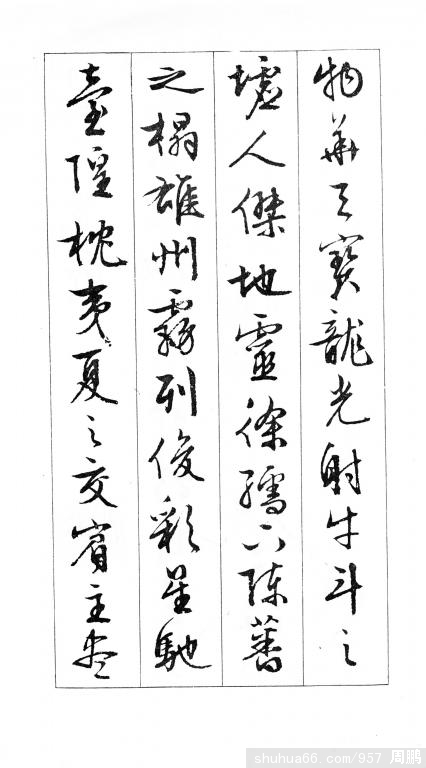 物華天寶龍光射牛斗之
墟人傑地靈徐孺下陳蕃
之榻雄州霧列俊彩星馳
臺隍枕夷夏之交賓主盡
shuhua66.com/957 周鹏